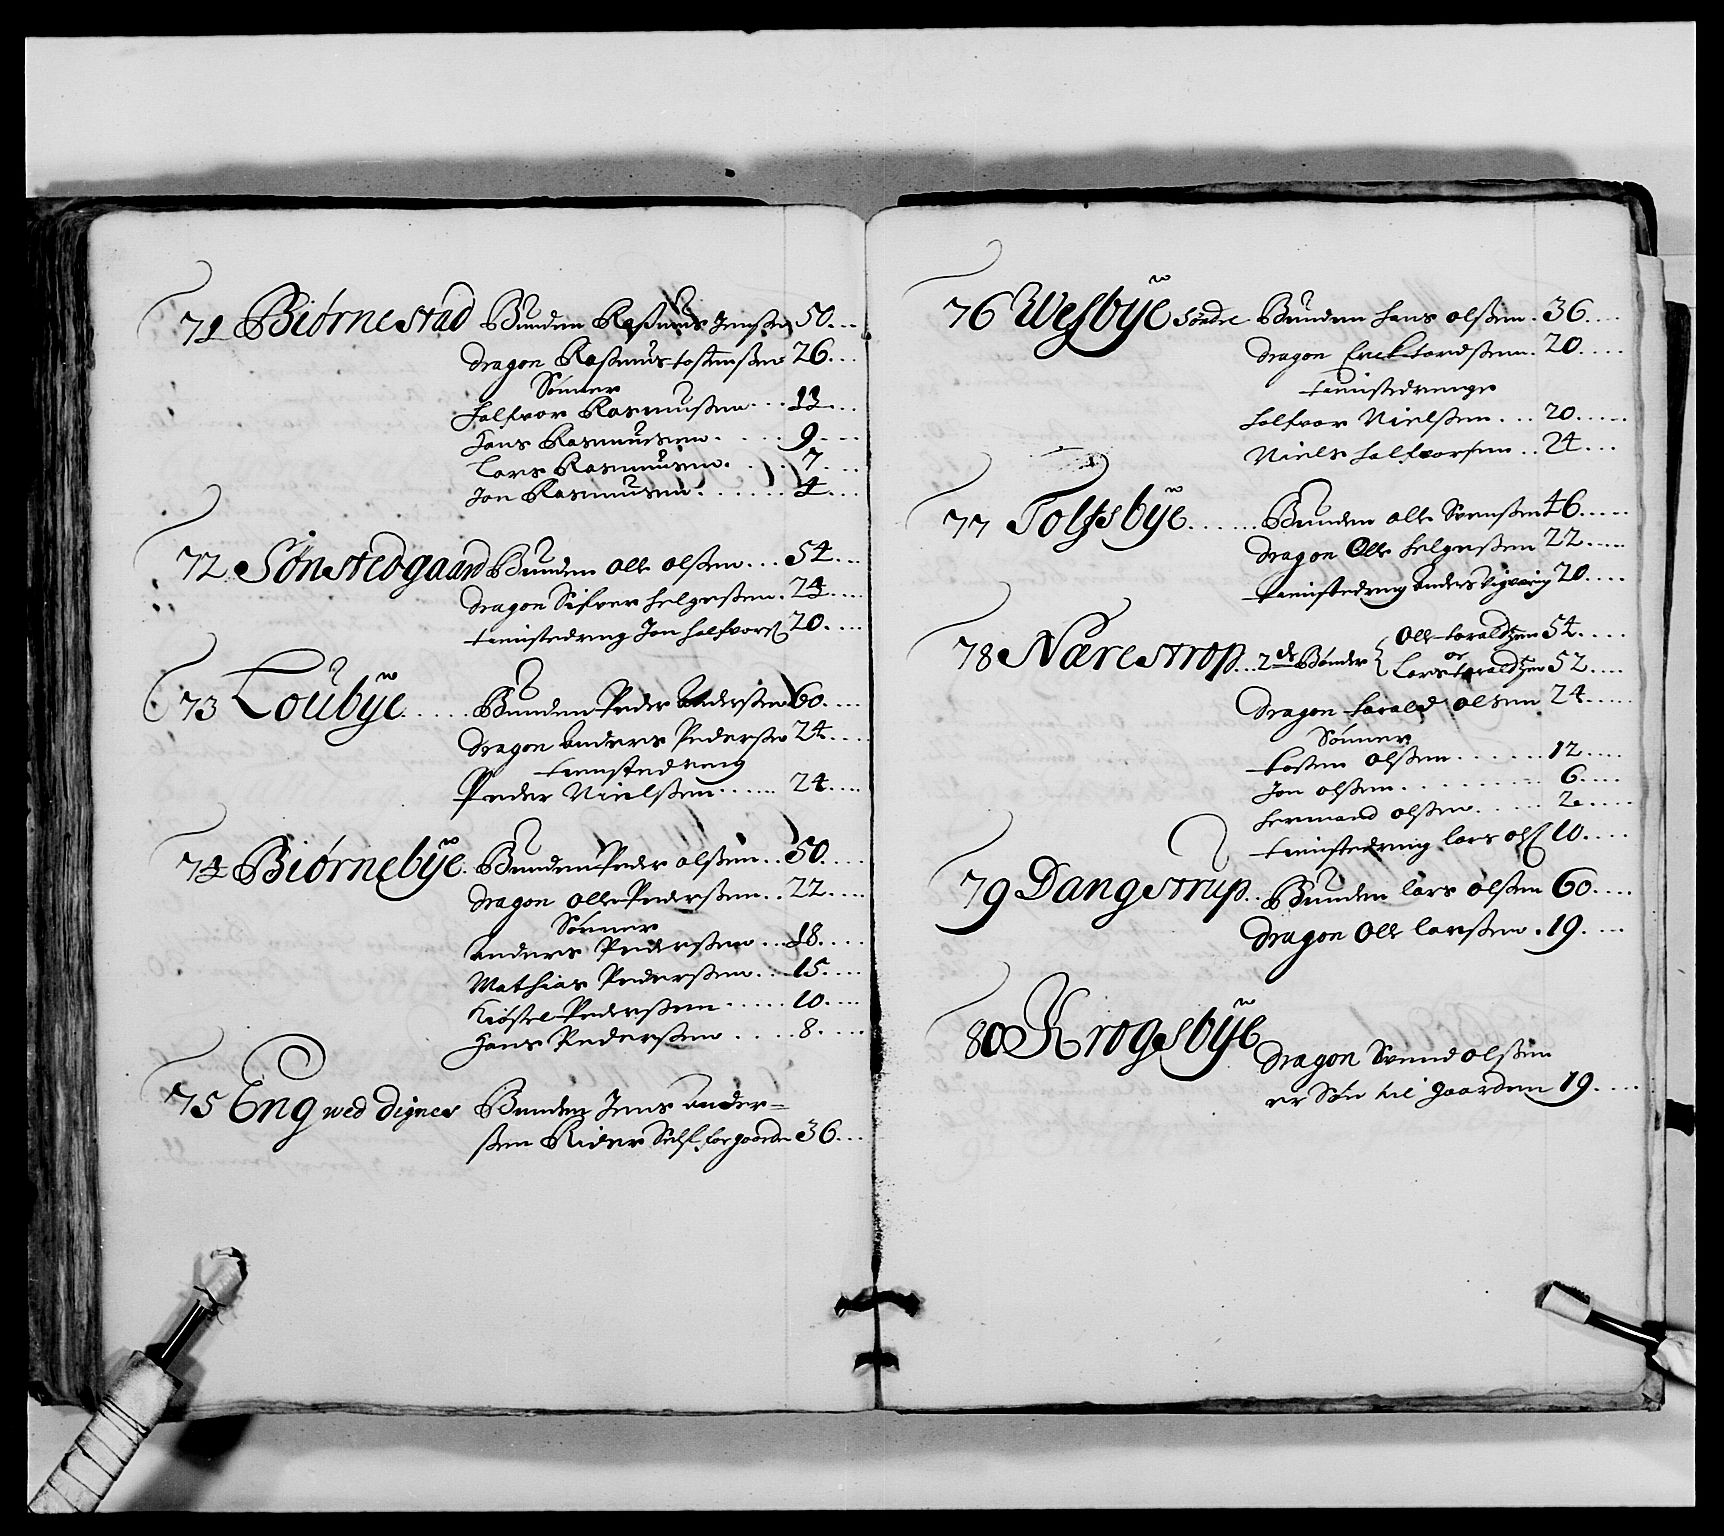 71 Biørnestad Bunden Rasmus Jenssen 50...
dragon Rasmus tostenssen 26...
Sönner
Halfvor Rasmussen... 13...
Hans Rasmussen..... 9...
Lars Rasmussen..... 7...
Jon Rasmussen...... 4...
72 Sønstedgaard Bunden Olle olssen... 54...
dragon Sifver helgessen. 24...
tienistedreng Jon halfvors 20...
73 Loubÿe..... Bunden Peder Anderssen 60...
dragon Anders Pederssen 24...
tienistedreng
Peder Nielssen..... 24...
74 Biørnebÿe. Bunden Peder olssen.. 50...
dragon Olle Pederssen.. 22...
Sönner
Anders Pederssen... 18...
Mathias Pederssen... 15...
Kiöstel Pederssen..... 10...
Hans Pederssen..... 8...
75 Eng wed Dignes Bunden Jens Ander=
ssen Rider Self for gaarden 36...
76 Wesbÿe Söndre Bunden hans olssen. 36...
dragon Erick tordssen. 20....
tienistedrenge
halfvor Nielssen... 20.....
Niels halfvorsen.. 24...
77 Tolfsbÿe...... Bunden olle Svenssen 46....
dragon Olle helgessen 22.....
tienistedreng Anders 20....
78 Nærestrop... 2de Bønder Olle toraldtzen 54....
og
Lars toraldtzen 52....
dragon harald olssen 24.....
Sönner
tosten olssen....... 12....
Jon olssen......... 6....
hermand olssen..... 2....
tienistedreng lars ols 10....
79 Dangstrup.. Bunden lars olssen 60....
dragon Olle larssen. 19....
80 Krogsbÿe dragon Svend olssen
er Søn til gaarden 19....